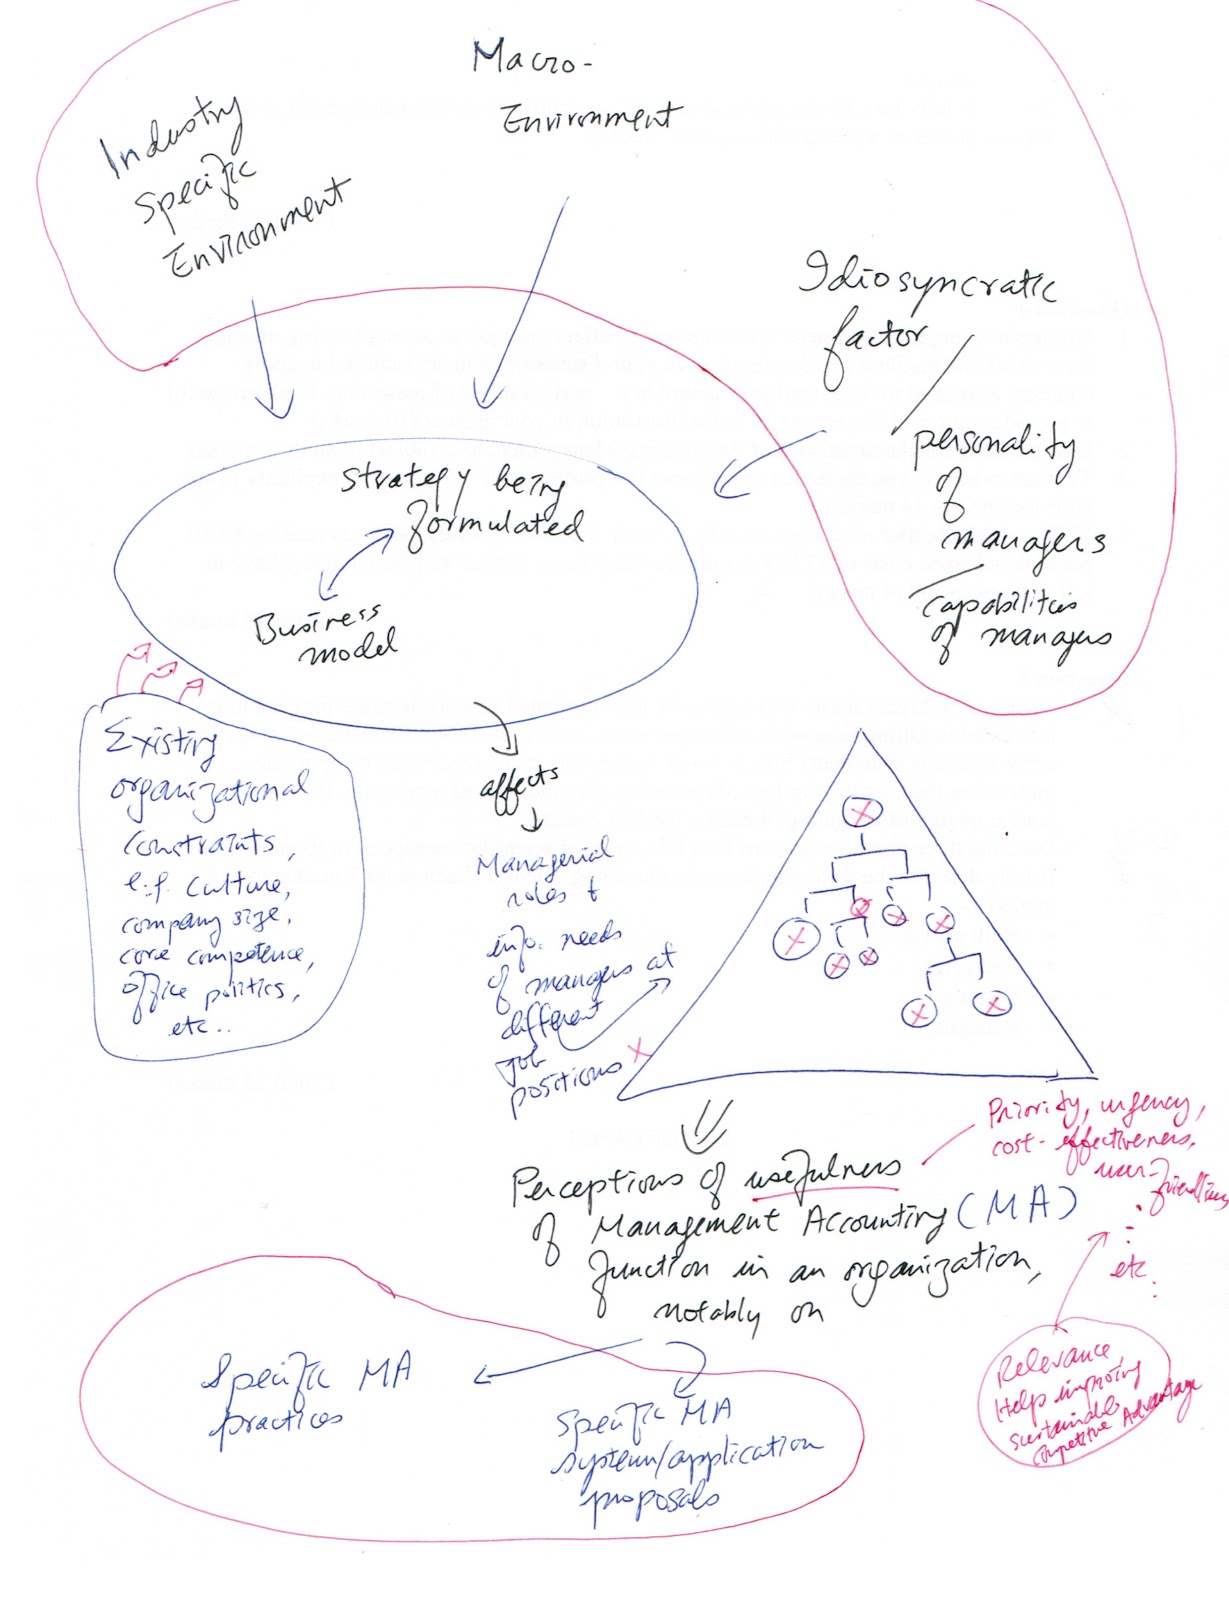 Macro-
Environment
Industry
Specific
Environment
Idiosyncratic
factor
personality
of
managers
capabilities
of managers
strategy being
formulated
Business
model
Existing
organizational
constraints,
e.g. culture,
company size,
core competence,
office politics,
etc..
affects
Managerial
roles &
info. needs
of managers at
different
job
positions
Perceptions of usefulness
of Management Accounting (MA)
function in an organization,
notably on
Priority, urgency,
cost-effectiveness,
user-
friendliness
etc.
Relevance,
Help improving
sustainable
competitive Advantage
Specific MA
practices
Specific MA
system/application
proposals